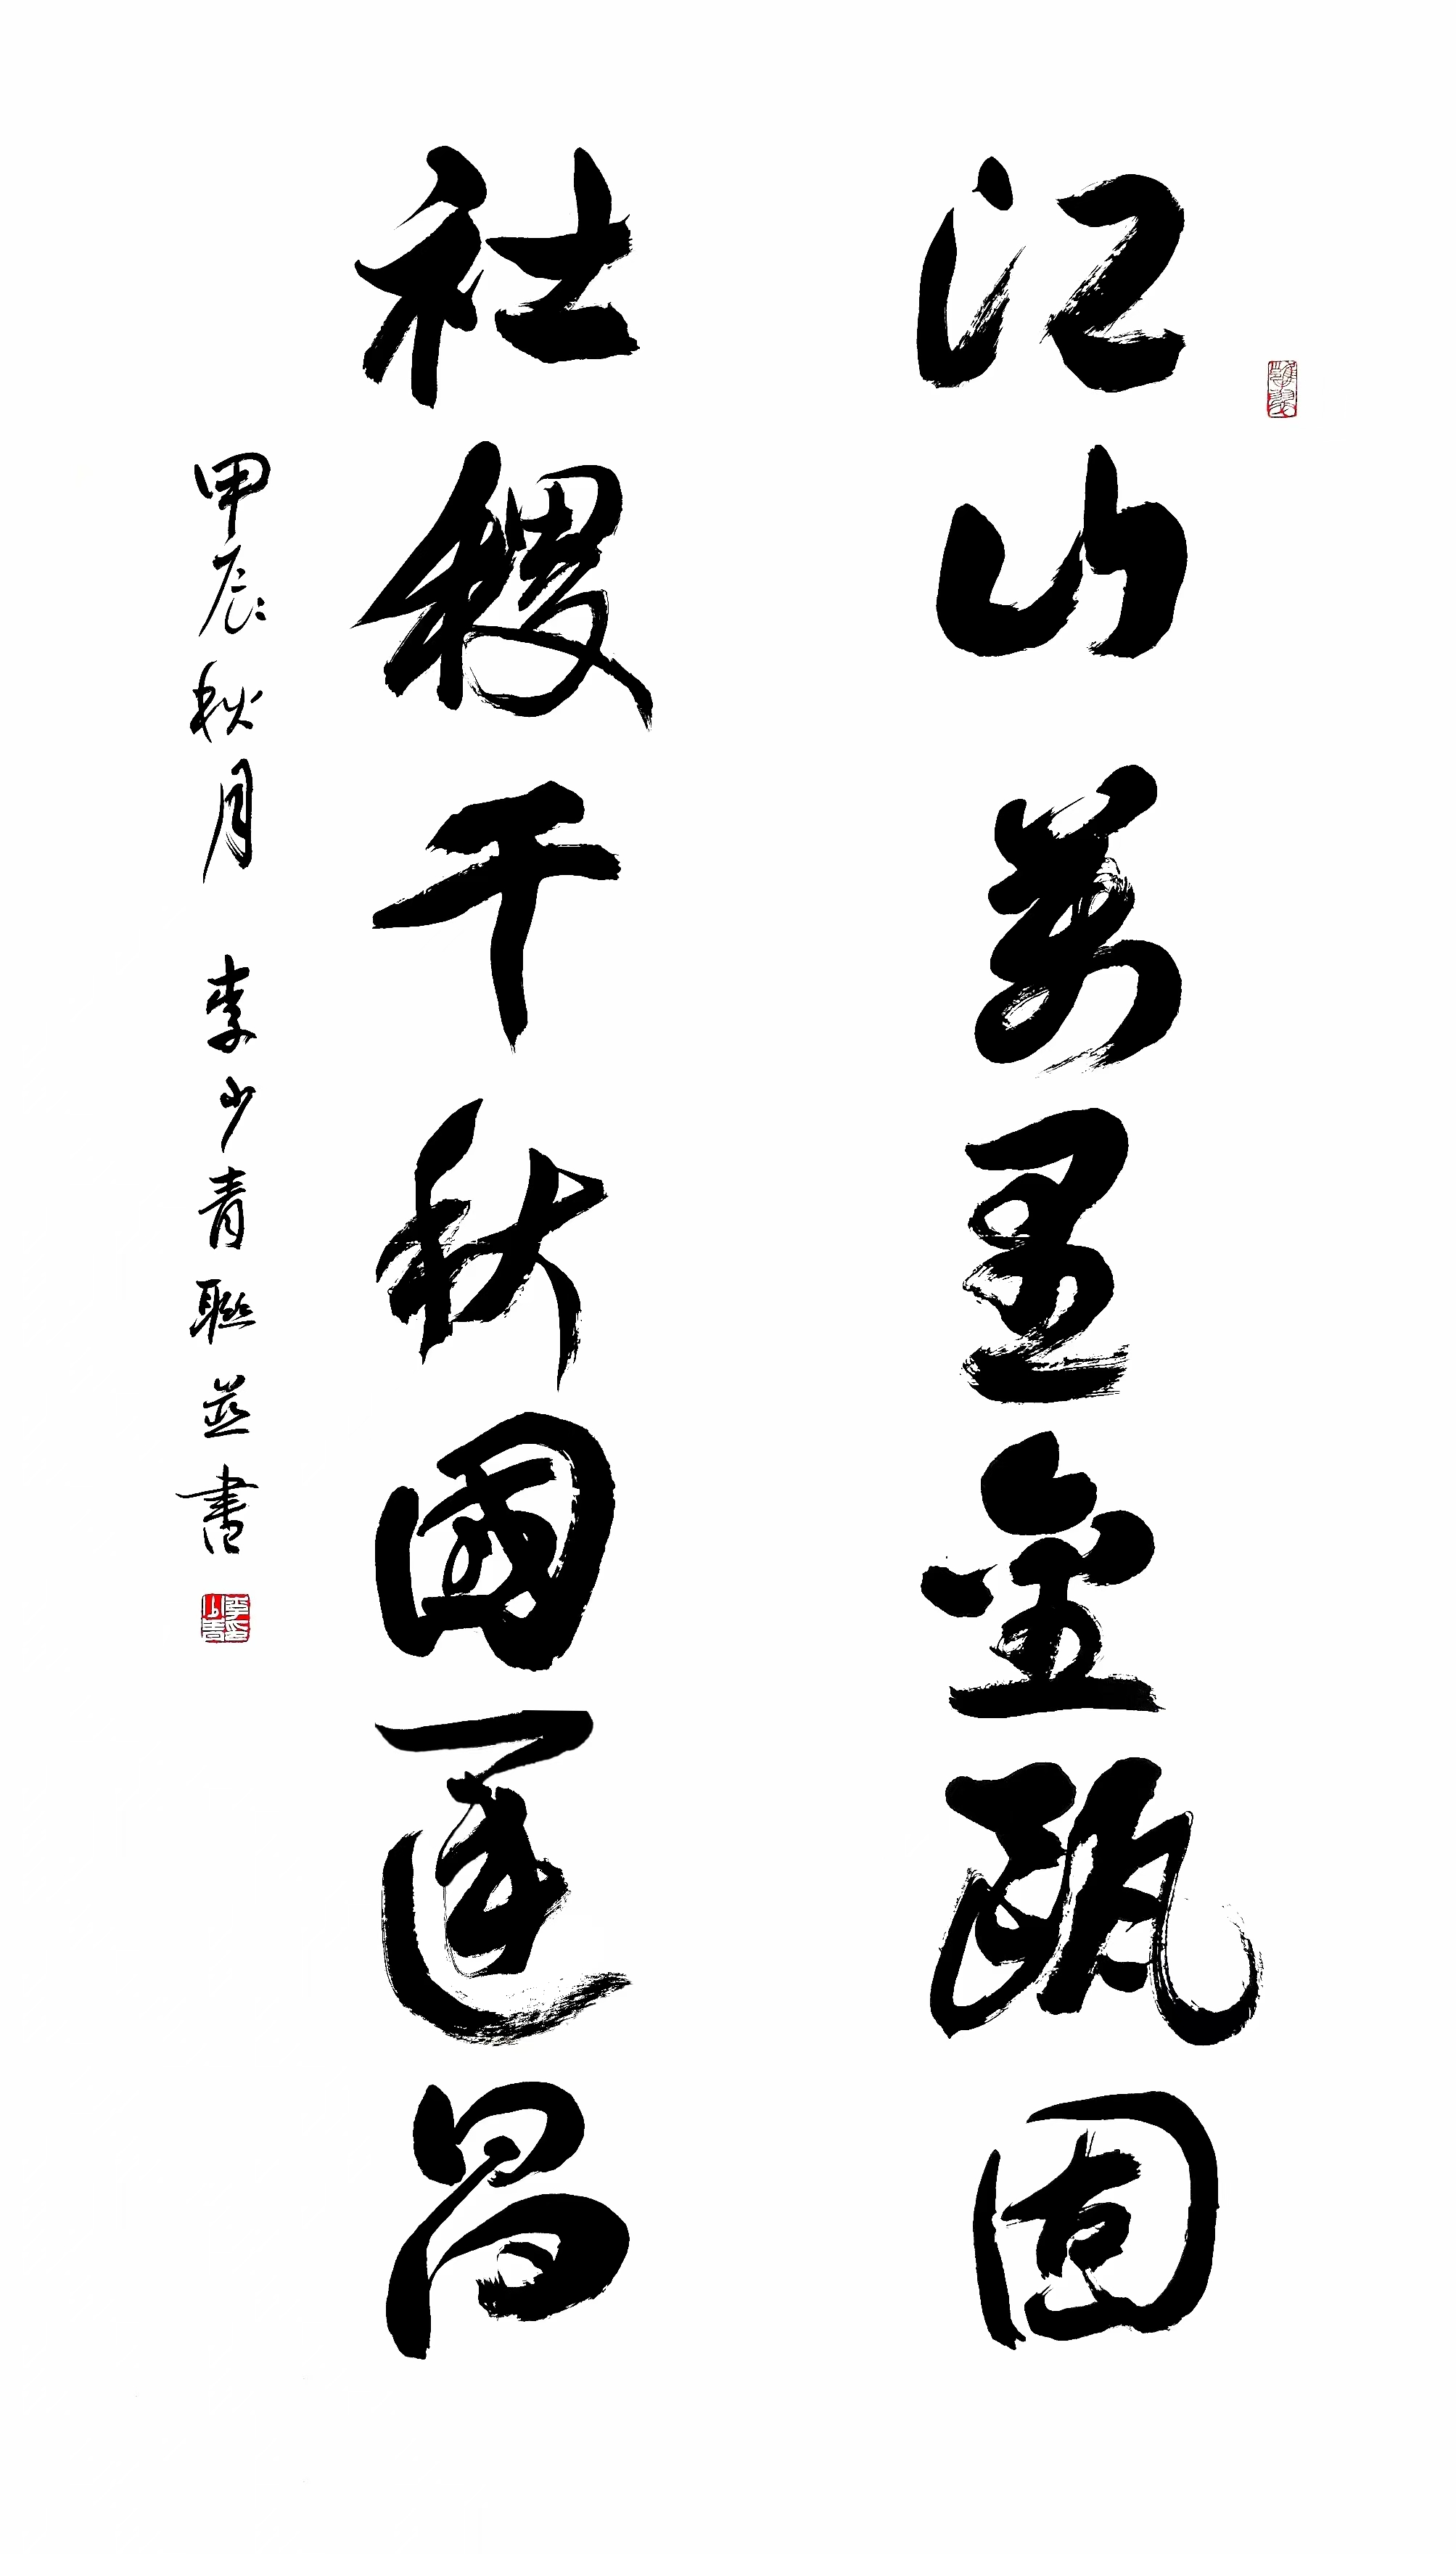 江山萬里金甌固
社稷千秋國運昌
甲辰秋月 李少青聯并書